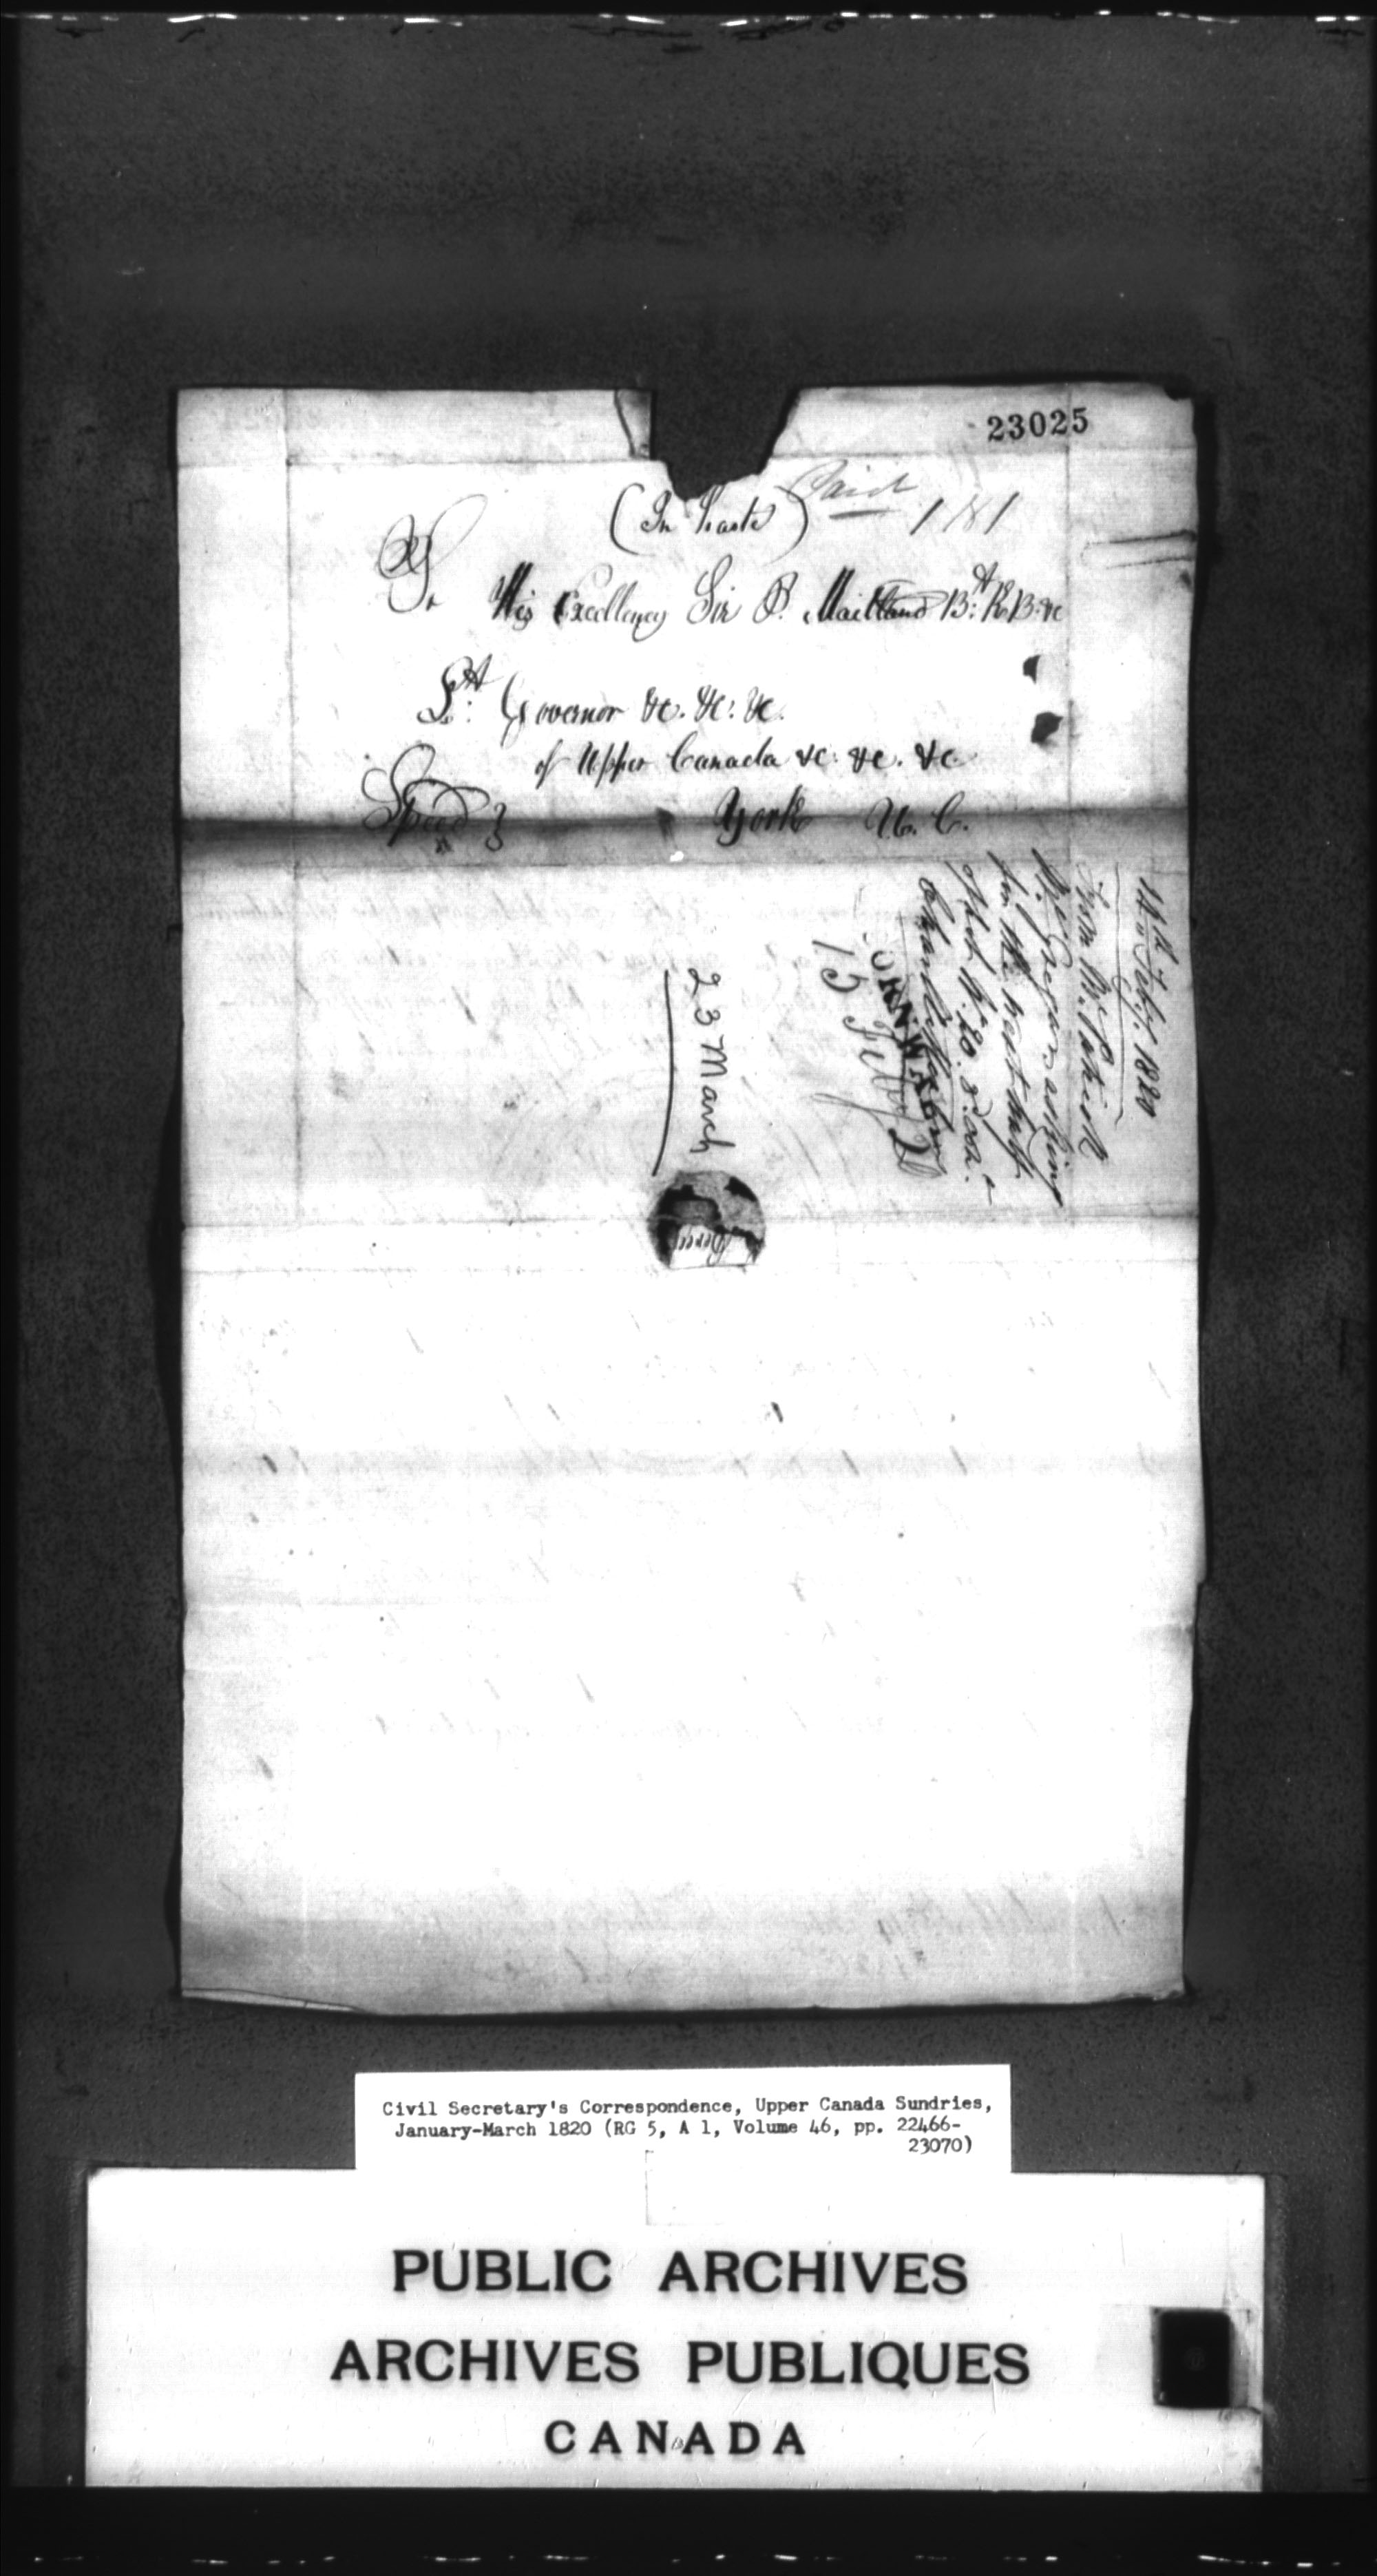 23025
(In haste) Paid 1/81
To His Excellency Sir P. Maitland B.t K.B. &c
L.t Governor &c. &c. &c.
of Upper Canada &c. &c. &c
Speed} York U. C.
14th Feby. 1820
From Mr. Patrick
McGregor asking
for the west half
of Lot N.o 20. 8. con.
CORNWALL
15 Feby
23 March
Civil Secretary's Correspondence, Upper Canada Sundries,
January-March 1820 (RG 5, A 1, Volume 46, pp. 22466-
23070)
PUBLIC ARCHIVES
ARCHIVES PUBLIQUES
CANADA